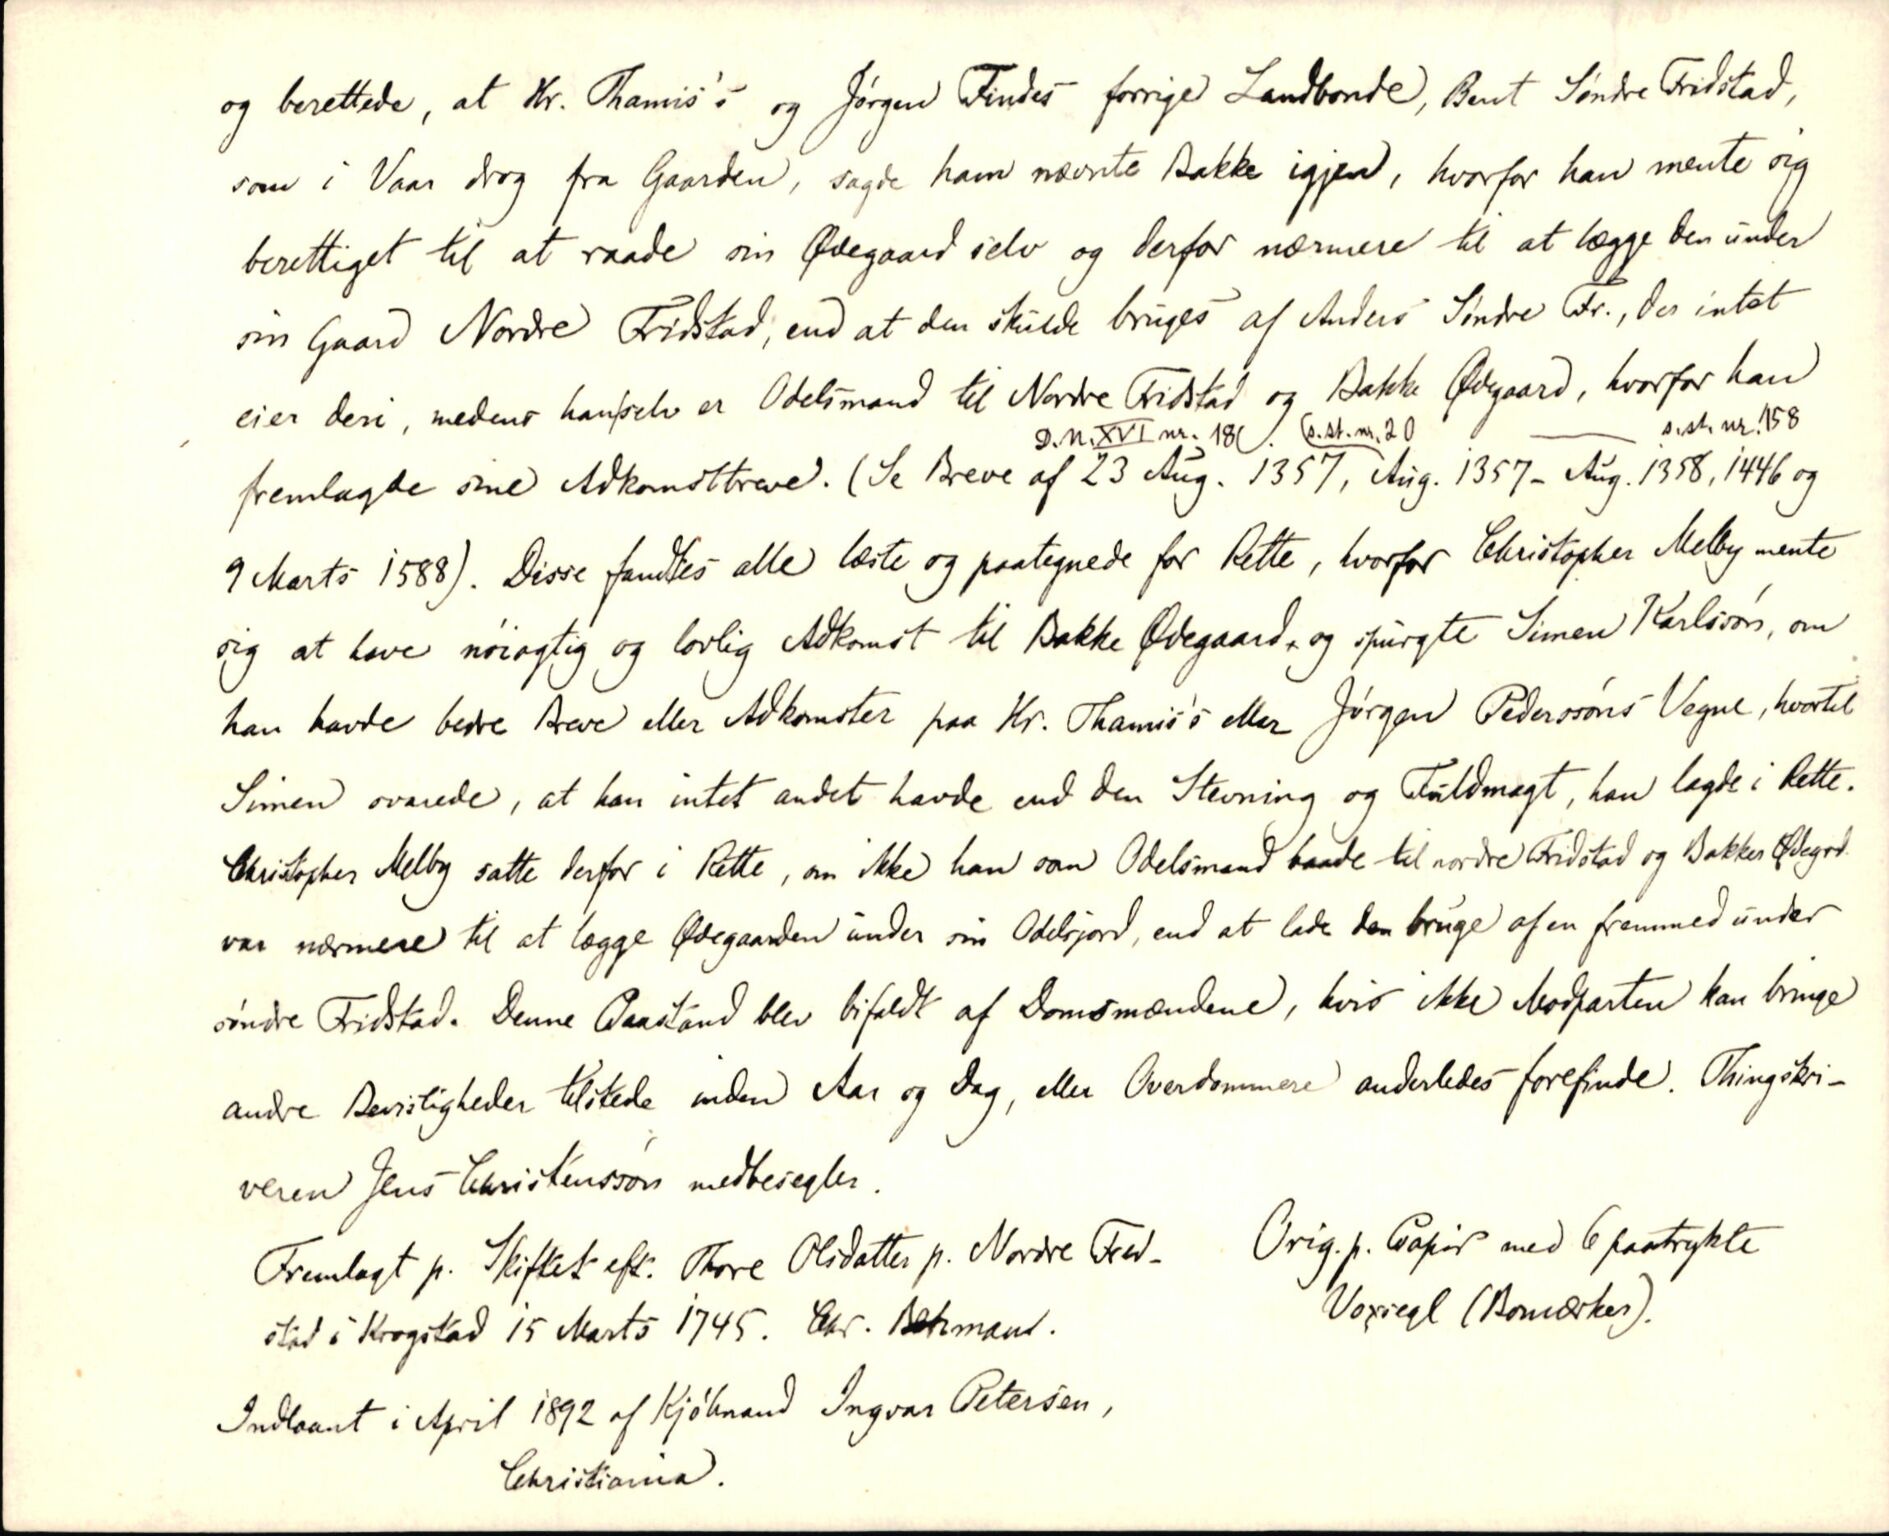 og berettede, at Hr. Thamis's og Jørgen Findes forrige Landbonde, Bent Søndre Fridstad,
som i Vaar drog fra Gaarden, sagde ham nævnte Bakke igjen, hvorfor han mente sig
berettiget til at raade sin Ødegaard selv og derfor nærmere til at lægge den under
sin Gaard Nordre Fridstad, end at den skulde bruges af Anders Søndre Fr., der intet
eier deri, medens han selv er Odelsmand til Nordre Fridstad og Bakke Ødegaard, hvorfor han
D.N. XVI nr. 18 . s.st. nr. 20 — s.st. nr. 158
fremlagde sine Adkomstbreve. (Se Breve af 23 Aug. 1357, Aug. 1357 - Aug. 1358, 1446 og
9 Marts 1588). Disse fandtes alle læste og paategnede for Rette, hvorfor Christopher Melby mente
sig at have nøiagtig og lovlig Adkomst til Bakke Ødegaard, og spurgte Simen Karlssøn, om
han havde bedre Breve eller Adkomster paa Hr. Thamis's eller Jørgen Pederssøns Vegne, hvortil
Simen svarede, at han intet andet havde end den Stevning og Fuldmagt, han lagde i Rette.
Christopher Melby satte derfor i Rette, om ikke han som Odelsmand baade til nordre Fridstad og Bakker Ødegrd.
var nærmere til at lægge Ødegaarden under sin Odelsjord, end at lade den bruge af en fremmed under
søndre Fridstad. Denne Paastand blev bifaldt af Domsmændene, hvis ikke Modparten kan bringe
andre Bevisligheder tilstede inden Aar og Dag, eller Overdommere anderledes forefinde. Thingskri-
veren Jens Christenssøn medbesegler.
Fremlagt p. Skiftet eft. Thore Olsdatter p. Nordre Fred-
stad i Krogstad 15 Marts 1745. Chr.
Orig. p. Papir med 6 paatrykte
Voxsegl (Bomærker).
Indlaant i April 1892 af Kjøbmand Ingvar Petersen,
Christiania.